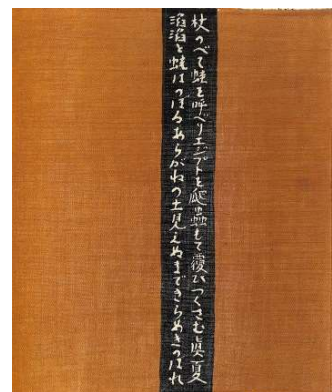 杖のべて蛙を呼べりエジプトを爬蟲もて覆ひつくさむ眞夏
滔滔と蛙はのぼるあらがねの土見えぬまできらめきのぼれ